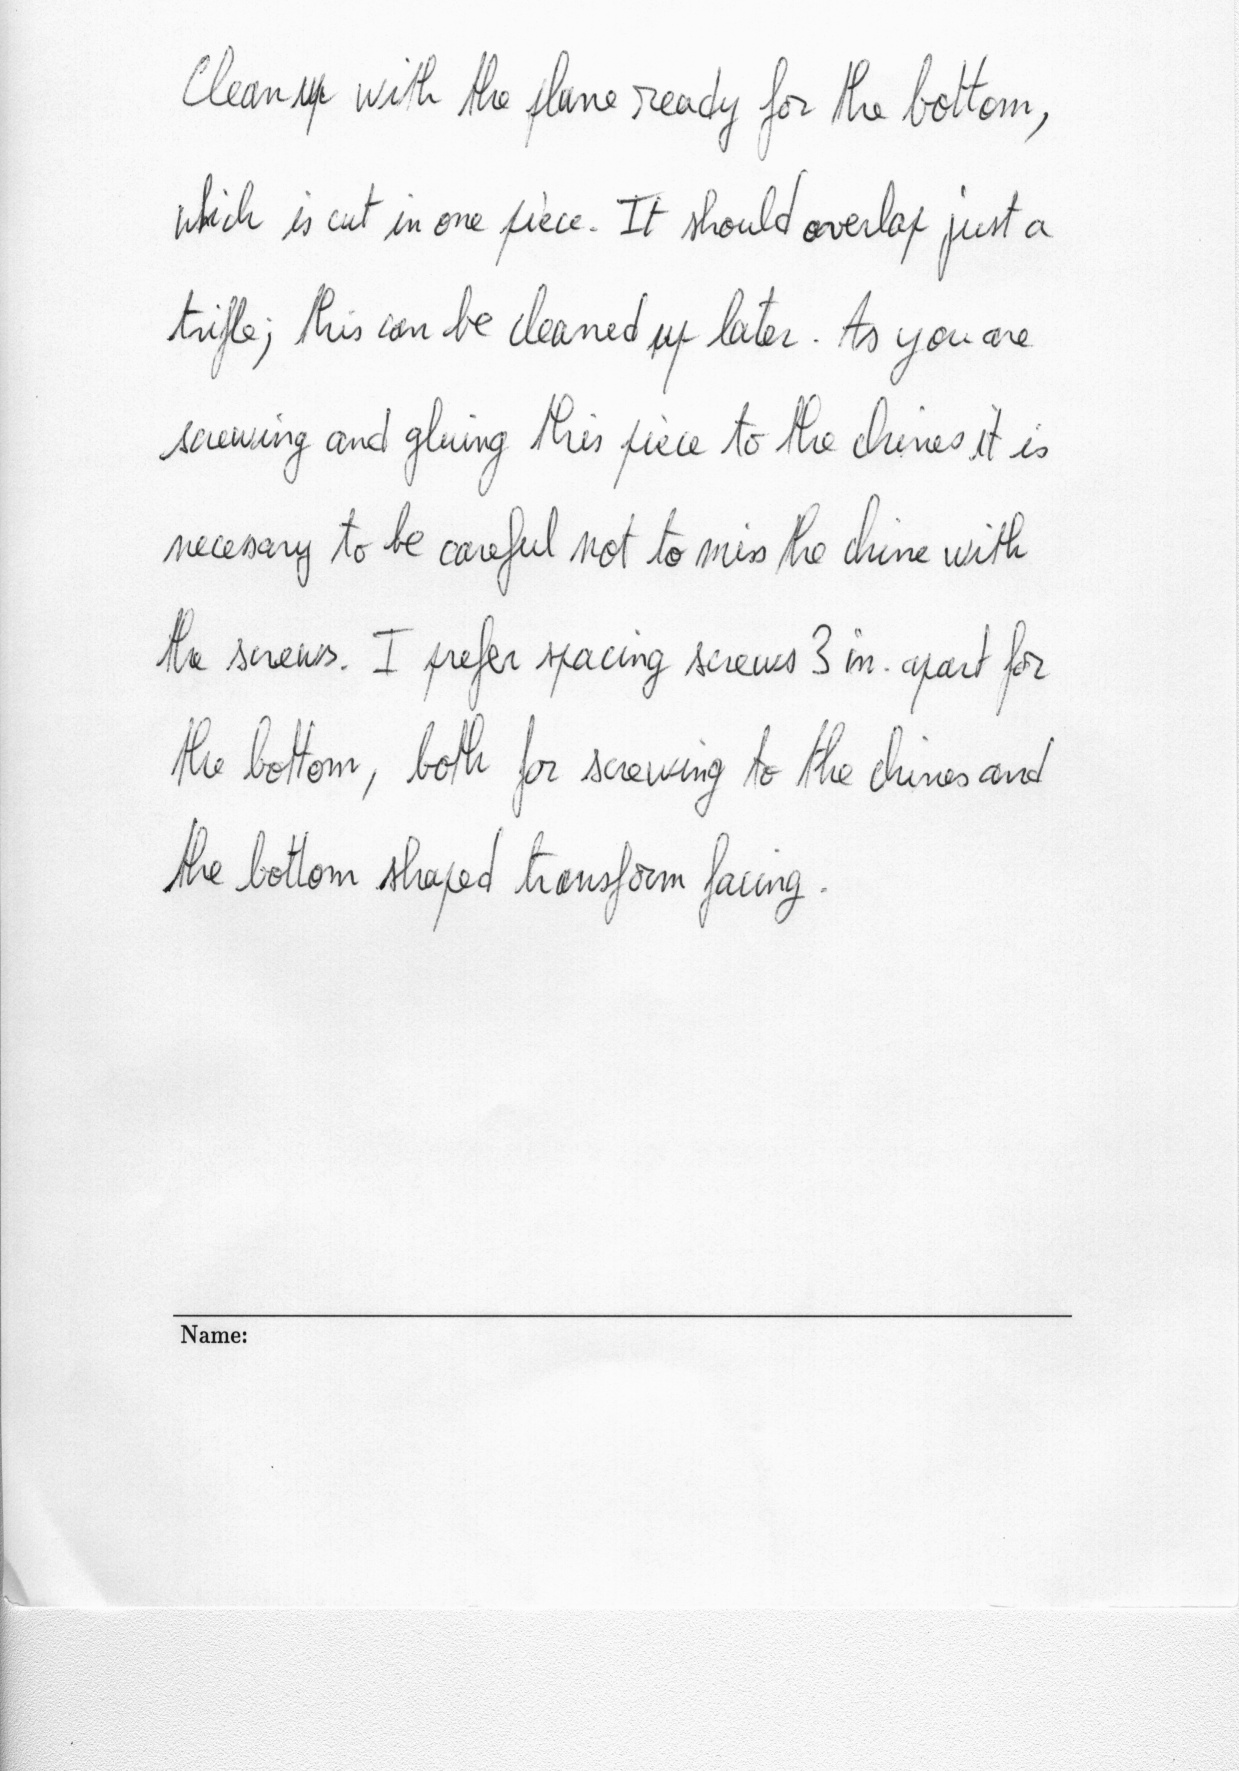 Clean up with the plane ready for the bottom,
which is cut in one piece. It should overlap just a
trifle; this can be cleaned up later. As you are
screwing and gluing this piece to the chines it is
necessary to be careful not to miss the chine with
the screws. I prefer spacing screws 3 in. apart for
the bottom, both for screwing to the chines and
the bottom shaped transform facing.
Name: